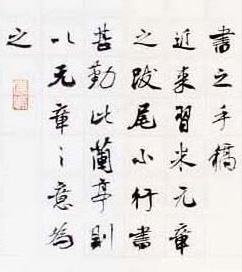 書之手稿
近來習米元章
之跋尾小行書
苦勤此蘭亭則
以元章之意為
之